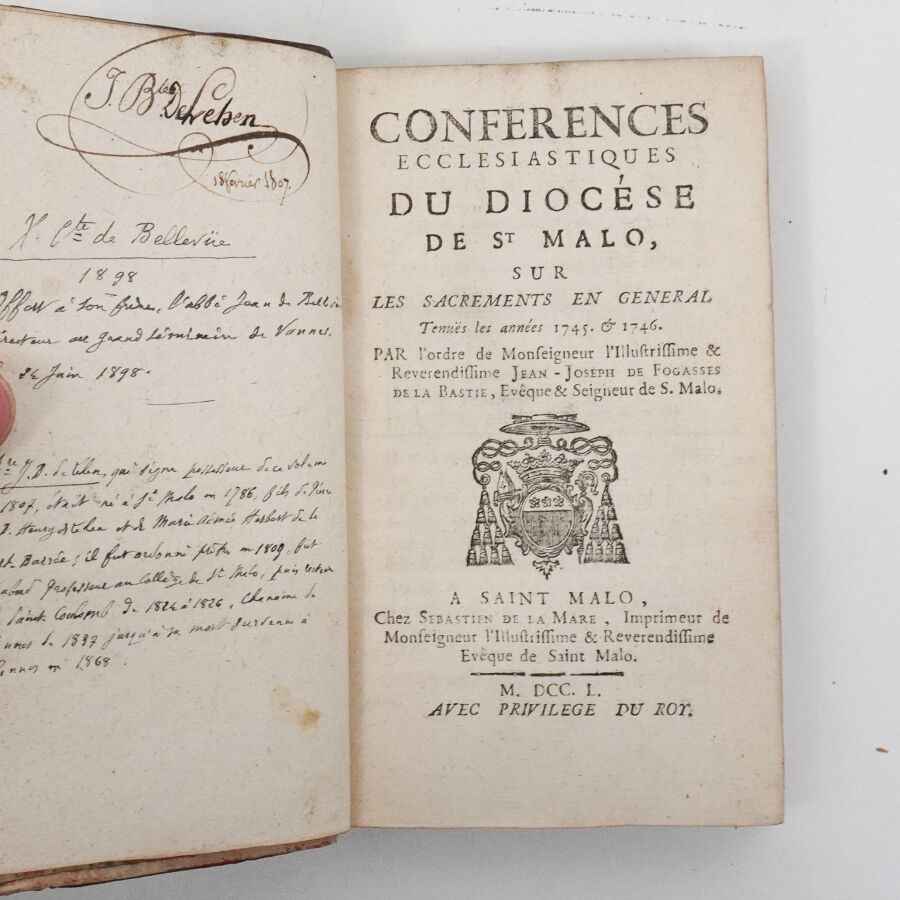 J. Bte De Lehen
18 février 1807.
X. Cte de Bellevüe
1898
offert à son frère, l'abbé Jean de
au grand Séminaire de Vannes.
24 Juin 1898.
J. B. de Lehen, qui signe possesseur de ce volume
1807, était né à St Malo en 1786, fils de Pierre
de Lehen et de Marie Aimée Herbert de la
Barrée; il fut ordonné prêtre en 1809, fut
Professeur au Collège de St Malo, puis recteur
Saint Coulomb de 1824 à 1826, Chanoine de
de 1837 jusqu'à sa mort survenue à
en 1868.
CONFERENCES
ECCLESIASTIQUES
DU DIOCÉSE
DE ST MALO,
SUR
LES SACREMENTS EN GENERAL
Tenuës les années 1745. & 1746.
PAR l'ordre de Monseigneur l'Illustrissime &
Reverendissime JEAN-JOSEPH DE FOGASSES
DE LA BASTIE, Evêque & Seigneur de S. Malo.
A SAINT MALO,
Chez SEBASTIEN DE LA MARE, Imprimeur de
Monseigneur l'Illustrissime & Reverendissime
Evêque de Saint Malo.
M. DCC. L.
AVEC PRIVILEGE DU ROY.